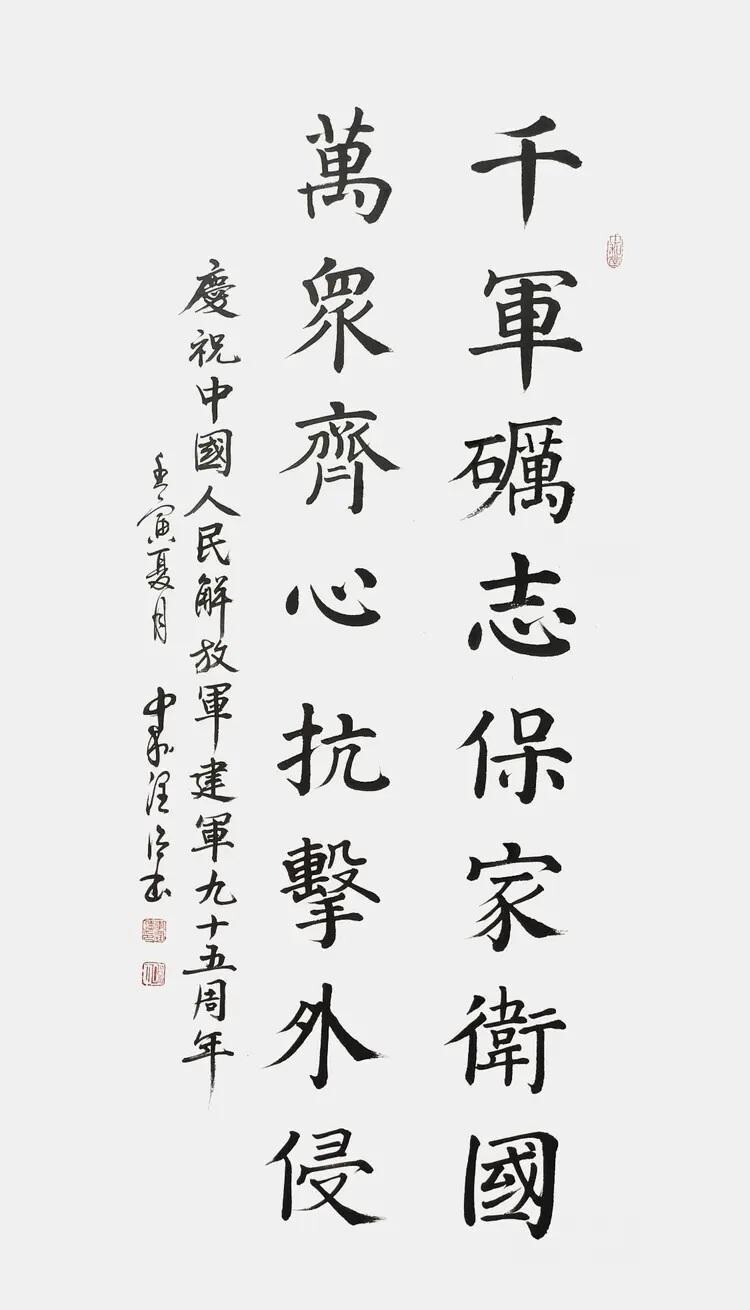 千軍礪志保家衛國
萬眾齊心抗擊外侵
慶祝中國人民解放軍建軍九十五周年
壬寅夏月